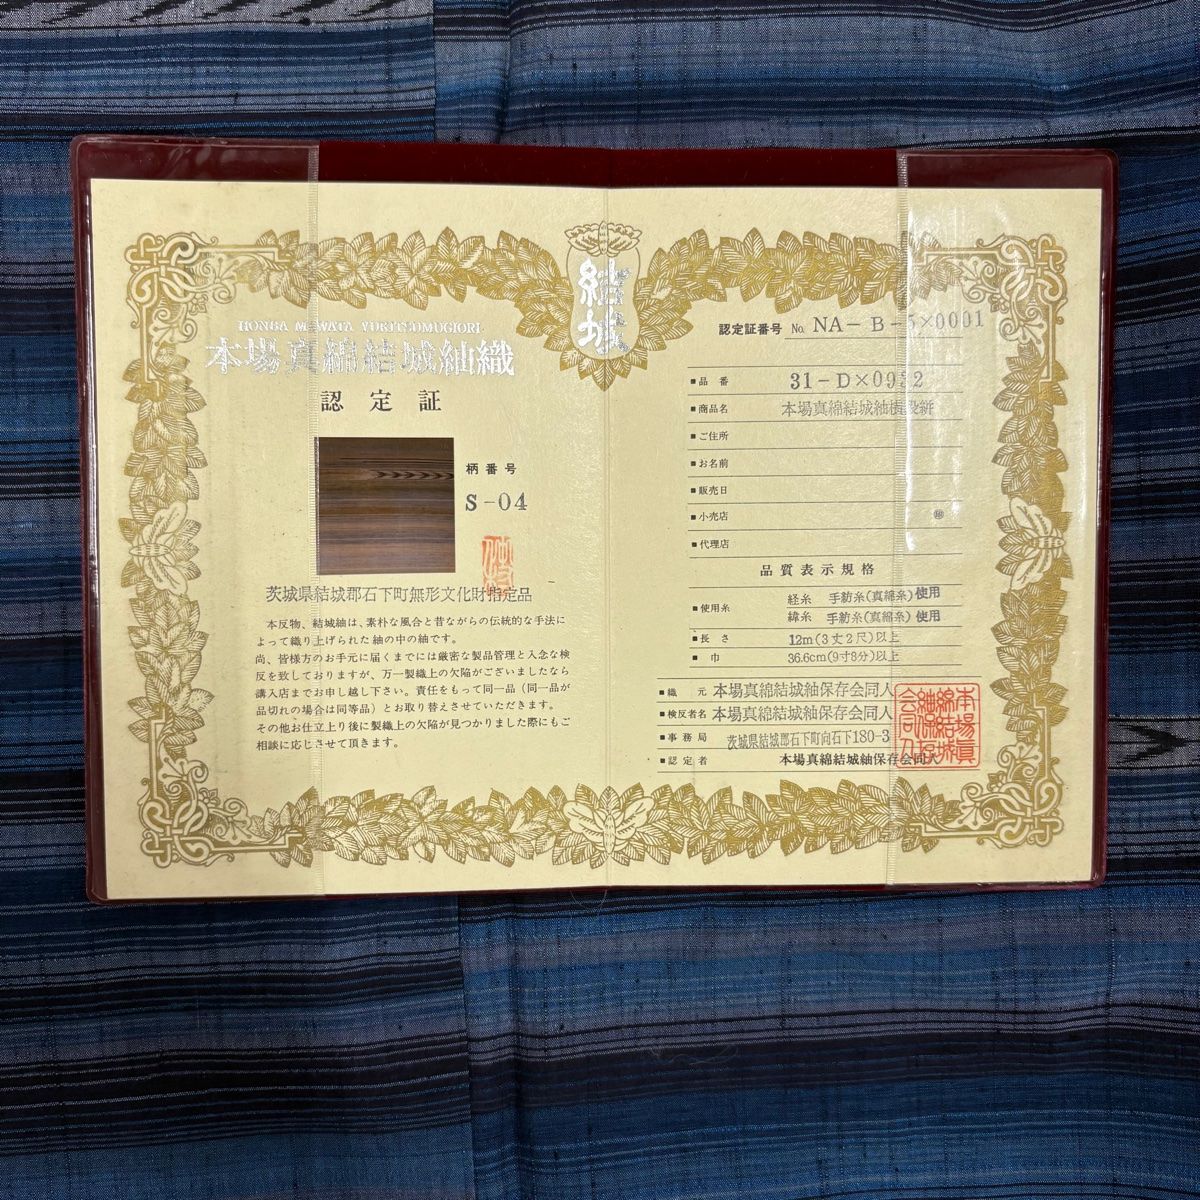 結城
HONBA MAWATA YUKITSUMUGIORI
本場真綿結城紬織
認定証
柄番号
S-04
茨城県結城郡石下町無形文化財指定品
本反物、結城紬は、素朴な風合と昔ながらの伝統的な手法に
よって織り上げられた紬の中の紬です。
尚、皆様方のお手元に届くまでには厳密な製品管理と入念な検
反を致しておりますが、万一製織上の欠陥がございましたなら
購入店までお申し越し下さい。責任をもって同一品(同一品が
品切れの場合は同等品)とお取り替えさせていただきます。
その他お仕立上り後に製織上の欠陥が見つかりました際にもご
相談に応じさせて頂きます。
認定証番号 No. NA-B-5×0001
■品番 31-D×0932
■商品名 本場真綿結城紬横段絣
■ご住所
■お名前
■販売日
■小売店 ㊞
■代理店
品質表示規格
■使用糸 経糸 手紡糸(真綿糸)使用
緯糸 手紡糸(真綿糸)使用
■長さ 12m(3丈2尺)以上
■巾 36.6cm(9寸8分)以上
■織元 本場真綿結城紬保存会同人
■検反者名 本場真綿結城紬保存会同人
■事務局 茨城県結城郡石下町向石下180-3
■認定者 本場真綿結城紬保存会同人
本場眞
綿結城
紬保存
会同人